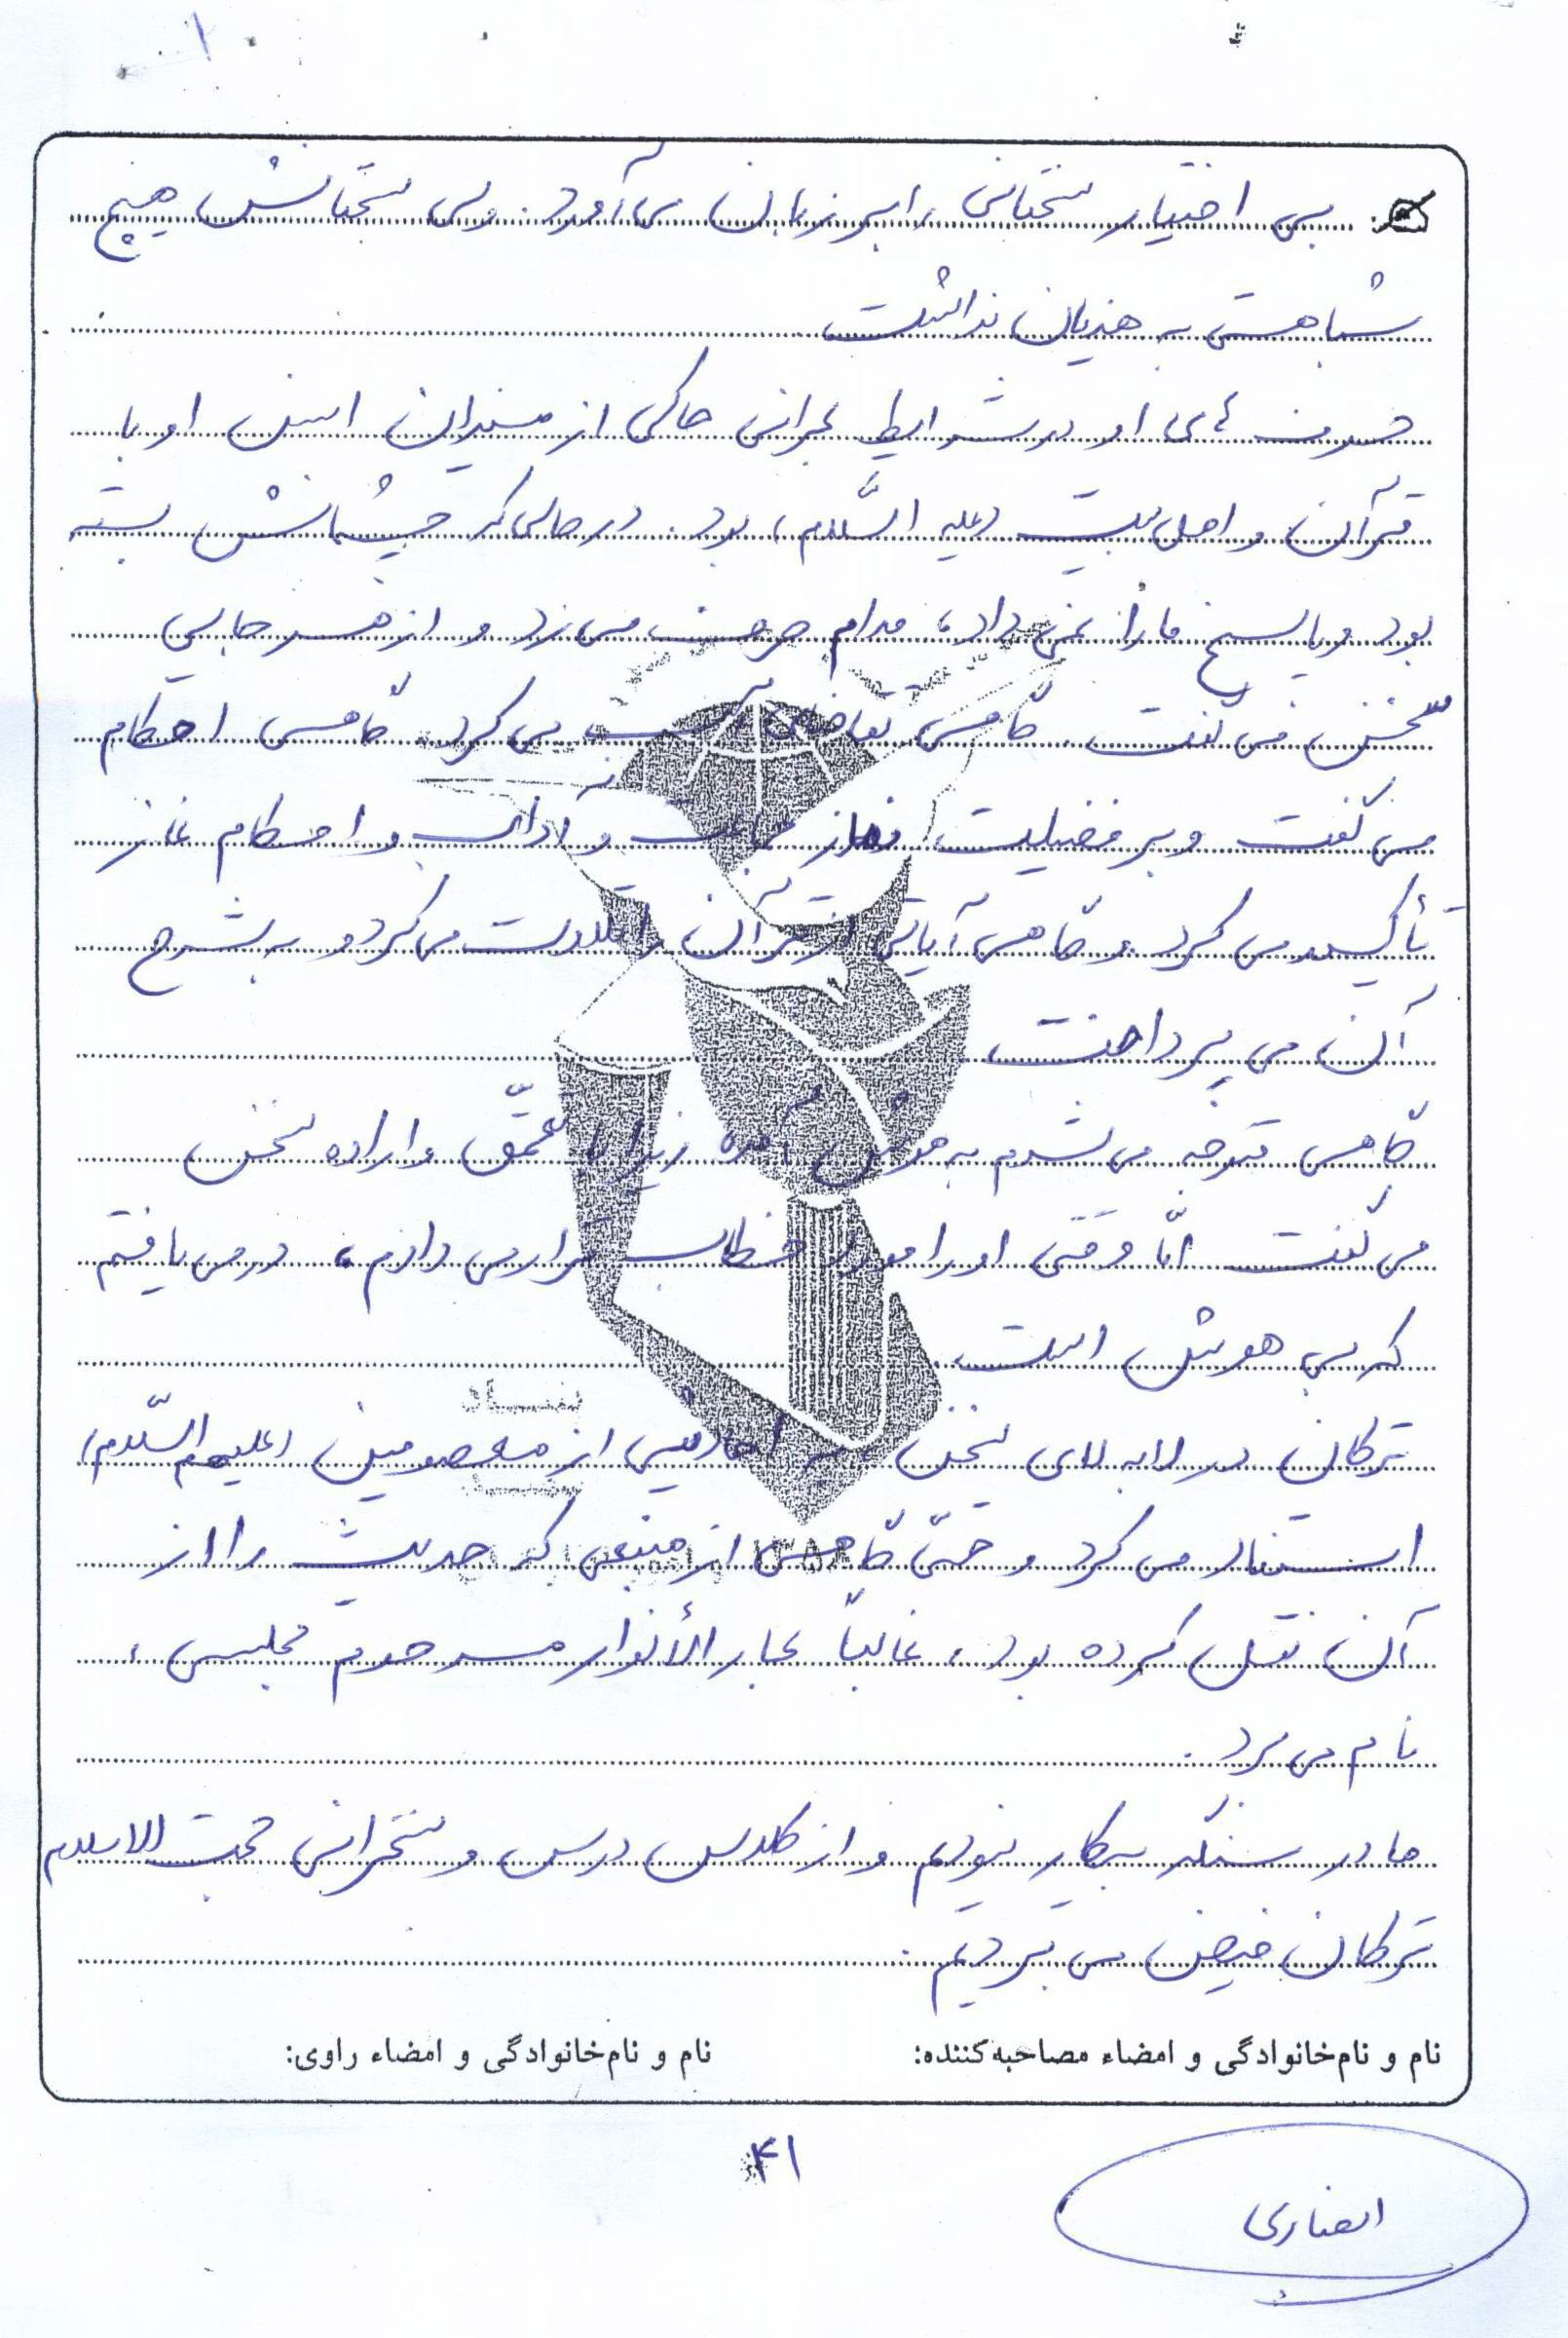 ۱
بی اختیار سخنانی را بر زبان می‌آورد. ولی سخنانش هیچ
شباهتی به هذیان نداشت
حرف‌های او در شرایط بحرانی حاکی از میزان انس او با
قرآن و اهل بیت (علیه السَّلام) بود. در حالی که چشمانش بسته
بود و پاسخ ما را نمی‌داد، مدام حرف می‌زد و از هر جایی
سخن می‌گفت. گاهی تقاضای آب می‌کرد. گاهی احکام
می‌گفت و بر فضیلت نماز جماعت و آداب و احکام نماز
تأکید می‌کرد و گاهی آیاتی از قرآن را تلاوت می‌کرد و به شرح
آن می‌پرداخت
گاهی متوجه می‌شدم به هوش آمده زیرا با تعمّق و اراده سخن
می‌گفت امّا وقتی او را مورد خطاب قرار می‌دادم، در می‌یافتم
که بی هوش است.
ترکان در لابه لای سخن به احادیثی از معصومین (علیهم السّلام)
استناد می‌کرد و حتّی گاهی از منبعی که حدیث را از
آن نقل کرده بود، غالباً بحار الأنوار مرحوم مجلسی،
نام می‌برد.
ما در سنگر بیکار نبودیم و از کلاس درس و سخنرانی حجت الاسلام
ترکان فیض می‌بردیم.
نام و نام‌خانوادگی و امضاء مصاحبه‌کننده: نام و نام‌خانوادگی و امضاء راوی:
۴۱
انصاری